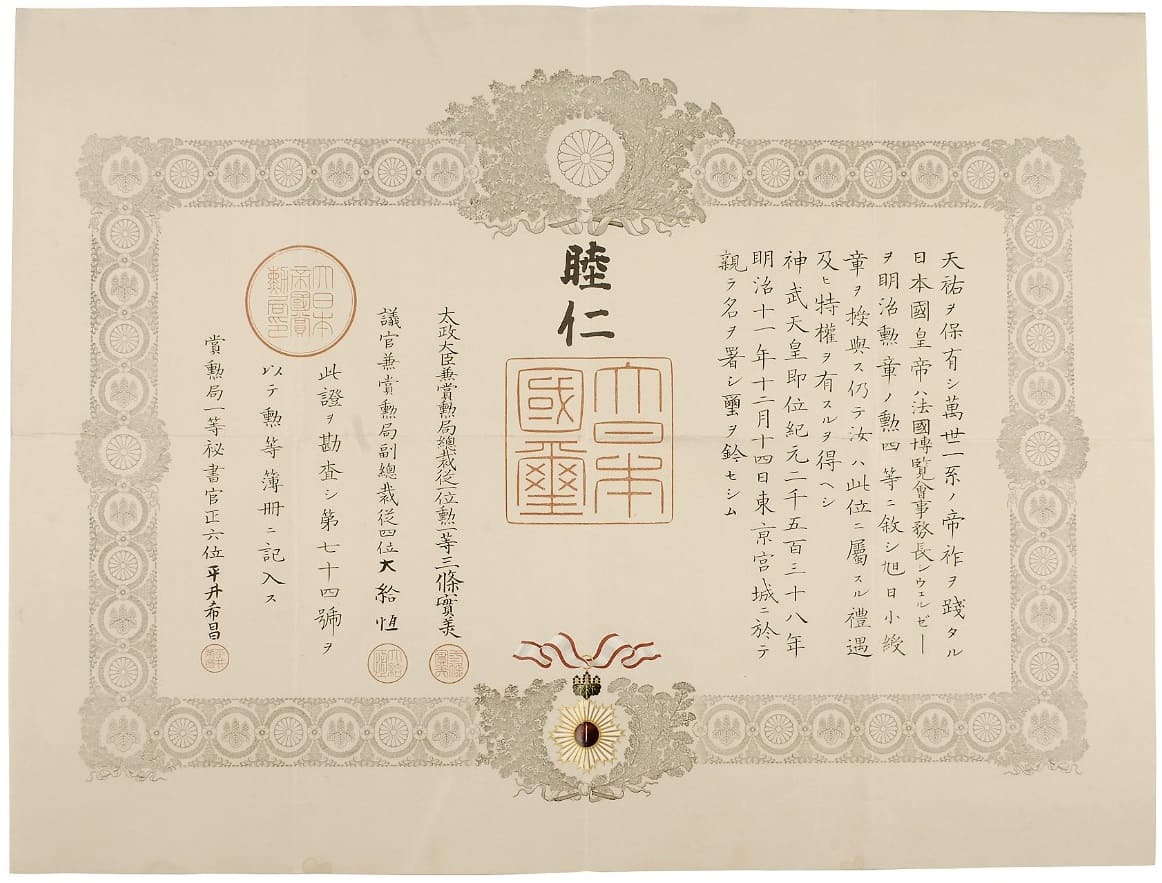 天祐ヲ保有シ萬世一系ノ帝祚ヲ踐タル
日本國皇帝ハ法國博覽會事務長シウェルゼー
ヲ明治勳章ノ勳四等ニ敘シ旭日小綬
章ヲ授與ス仍テ汝ハ此位ニ屬スル禮遇
及ヒ特權ヲ有スルヲ得ヘシ
神武天皇即位紀元二千五百三十八年
明治十一年十二月十四日東亰宮城ニ於テ
親ラ名ヲ署シ璽ヲ鈐セシム
睦仁
大日本
國璽
太政大臣兼賞勳局總裁從一位勳一等三條實美
議官兼賞勳局副總裁從四位大給恒
大日本
帝國賞
勳局印
此證ヲ勘査シ第七十四號ヲ
以テ勳等簿冊ニ記入ス
賞勳局一等祕書官正六位平井希昌